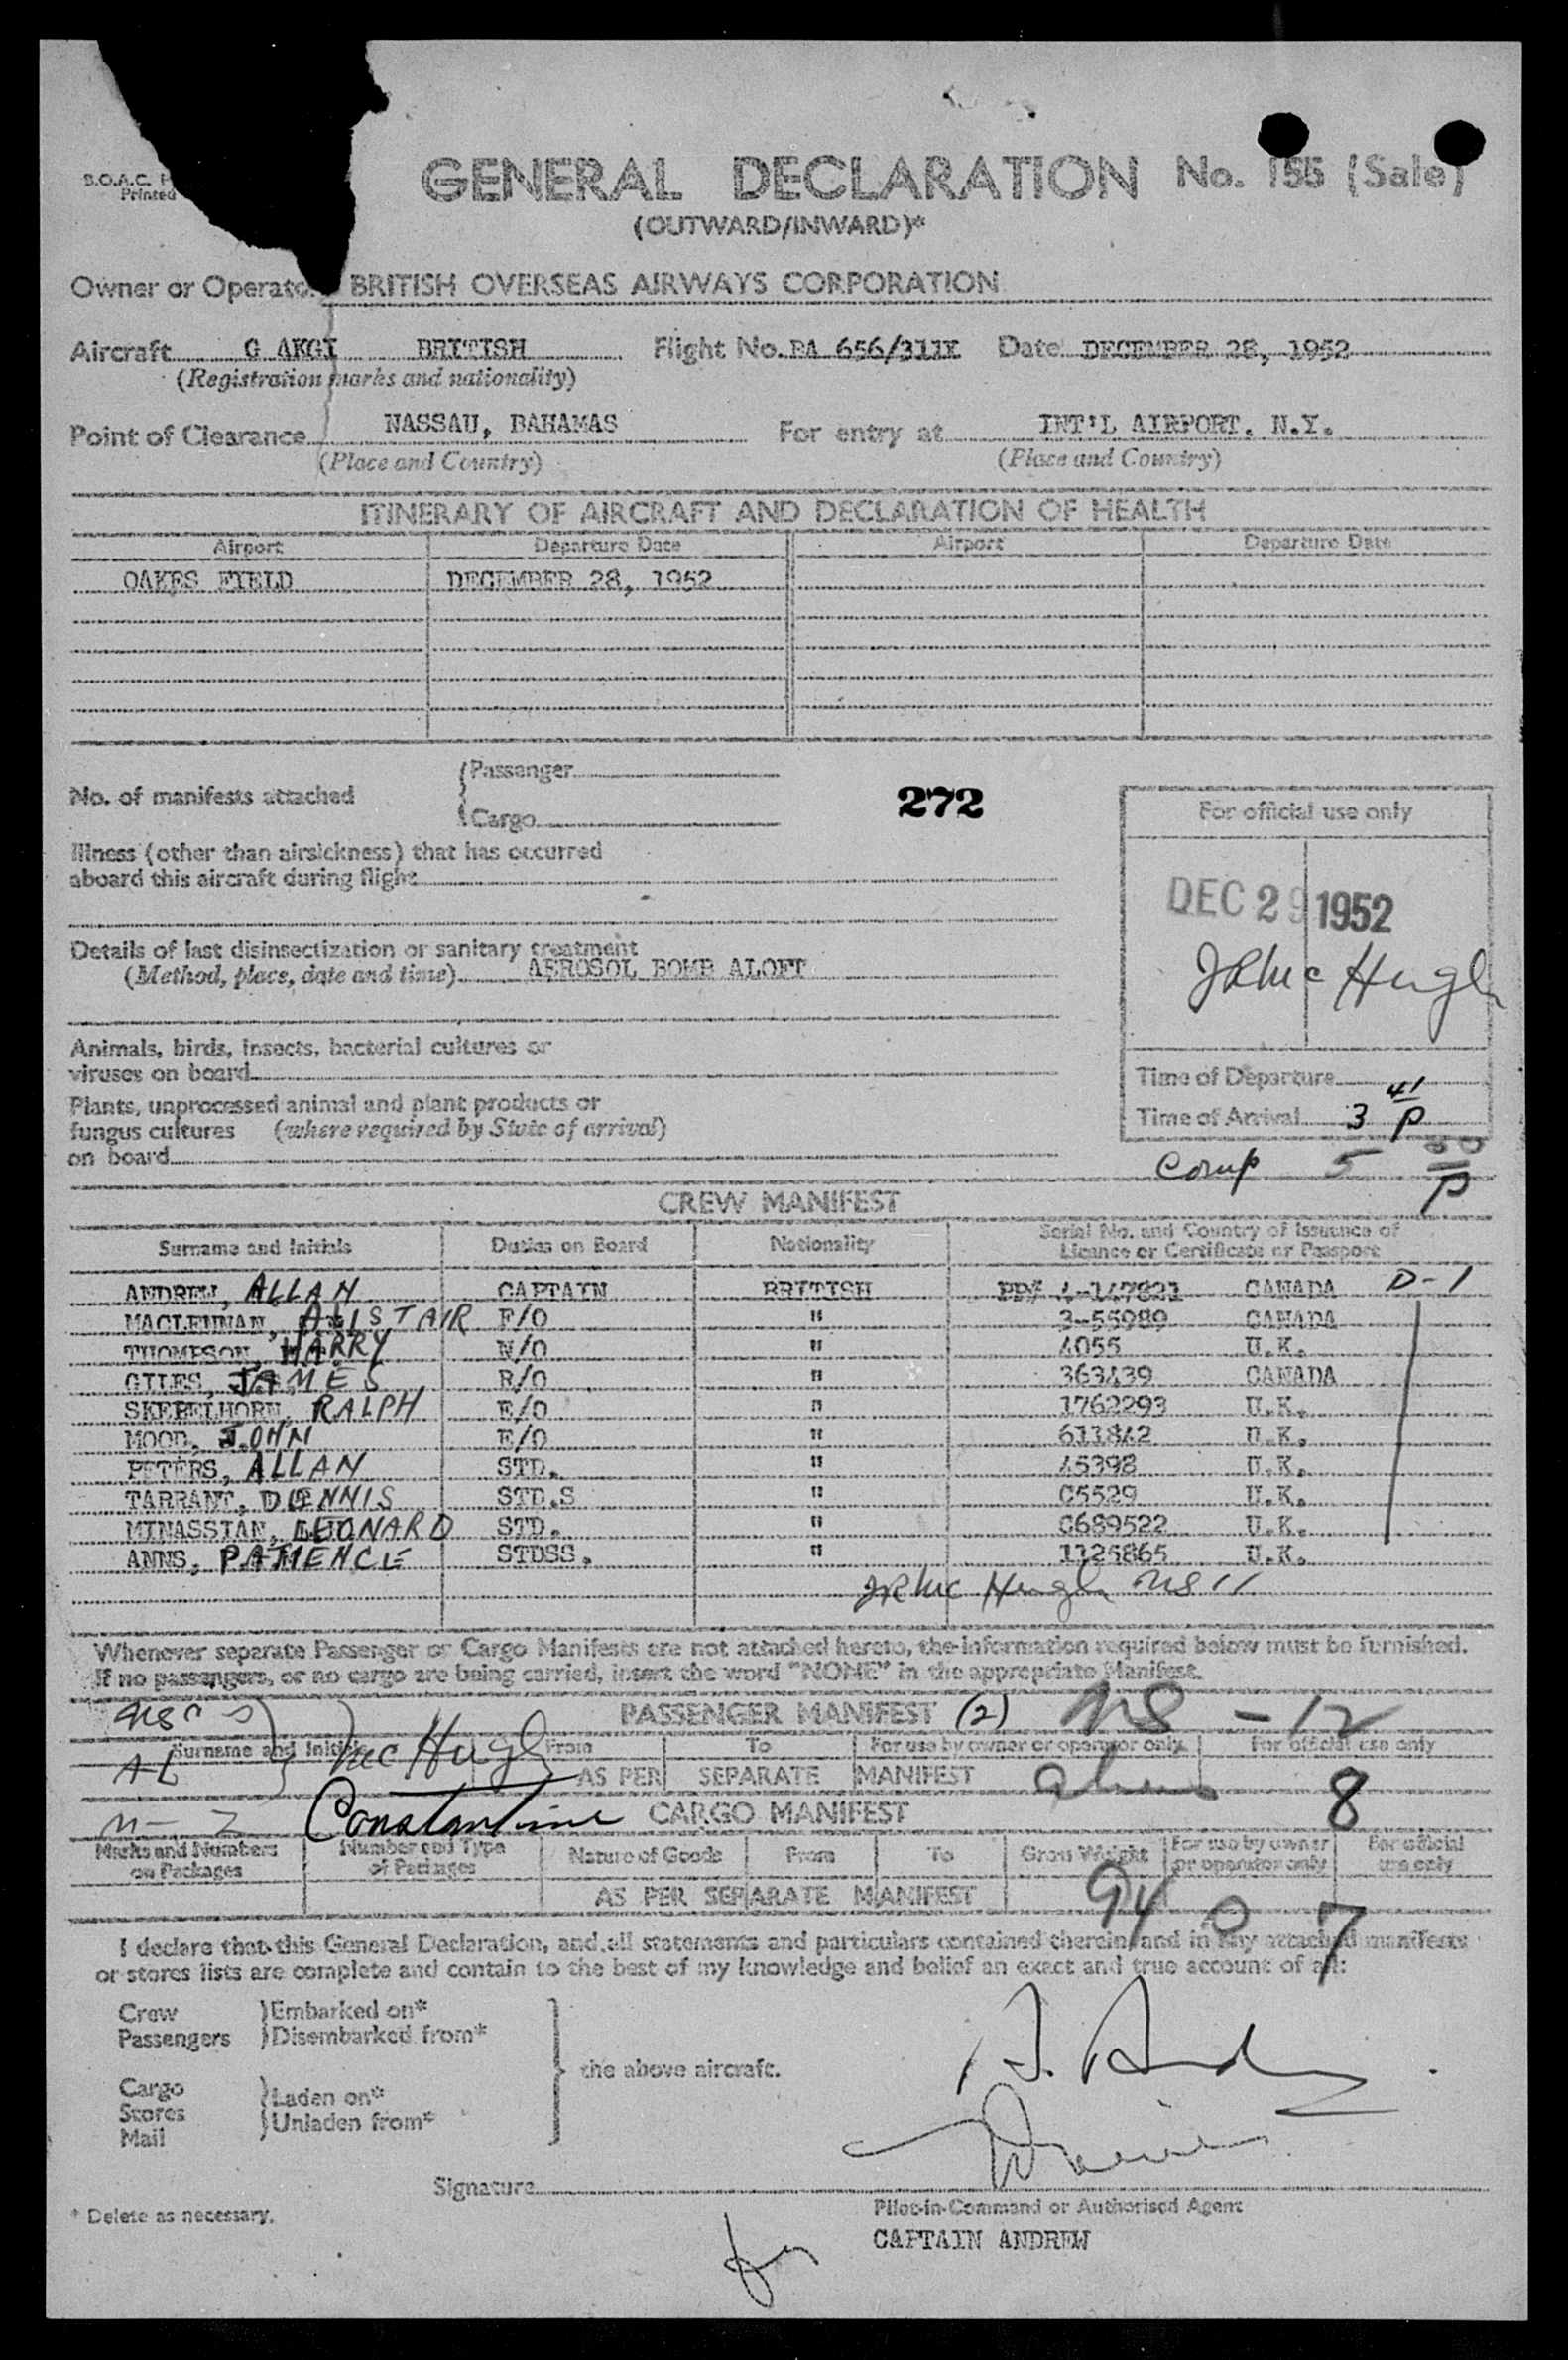 B.O.A.C.
Printed
GENERAL DECLARATION No. 155 (Sale)
(OUTWARD/INWARD)*
Owner or Operator BRITISH OVERSEAS AIRWAYS CORPORATION
Aircraft G AKGI BRITISH Flight No. BA 656/311X Date DECEMBER 28, 1952
(Registration marks and nationality)
Point of Clearance NASSAU, BAHAMAS For entry at INT'L AIRPORT, N.Y.
(Place and Country) (Place and Country)
ITINERARY OF AIRCRAFT AND DECLARATION OF HEALTH
Airport Departure Date Airport Departure Date
OAKES FIELD DECEMBER 28, 1952
Passenger
No. of manifests attached 272
Cargo
For official use only
Illness (other than airsickness) that has occurred
aboard this aircraft during flight
DEC 29 1952
Details of last disinsectization or sanitary treatment
(Method, place, date and time) AEROSOL BOMB ALOFT
JRMcHugh
Animals, birds, insects, bacterial cultures or
viruses on board
Time of Departure
Plants, unprocessed animal and plant products or
Time of Arrival 3 41 P
fungus cultures (where required by State of arrival)
on board
Comp 5 00 P
CREW MANIFEST
Surname and Initials Duties on Board Nationality Serial No. and Country of Issuance of
Licence or Certificate or Passport
ANDREW, ALLAN CAPTAIN BRITISH PP# 4-147821 CANADA D-1
MACLENNAN, ALISTAIR F/O " 3-55989 CANADA
THOMPSON, HARRY N/O " 4055 U.K.
GILES, JAMES R/O " 363439 CANADA
SKEBELHORN, RALPH E/O " 1762293 U.K.
MOOD, JOHN E/O " 611842 U.K.
PETERS, ALLAN STD. " 45398 U.K.
TARRANT, DENNIS STD.S " C5529 U.K.
MINASSIAN, LEONARD STD. " C689522 U.K.
ANNS, STDSS. " 1125865 U.K.
JRMcHugh
Whenever separate Passenger or Cargo Manifests are not attached hereto, the information required below must be furnished.
If no passengers, or no cargo are being carried, insert the word "NONE" in the appropriate Manifest.
PASSENGER MANIFEST (2) NS - 12
McHugh
Surname and Initials From To For use by owner or operator only For official use only
AL
AS PER SEPARATE MANIFEST aliens 8
N - 2 Constantine CARGO MANIFEST
Marks and Numbers on Packages Number and Type of Packages Nature of Goods From To Gross Weight For use by owner or operator only For official use only
AS PER SEPARATE MANIFEST
94 0 7
I declare that this General Declaration, and all statements and particulars contained therein and in any attached manifests
or stores lists are complete and contain to the best of my knowledge and belief an exact and true account of all:
Crew Embarked on*
Passengers Disembarked from*
the above aircraft.
Cargo Laden on*
Stores Unladen from*
Mail
Signature
* Delete as necessary.
Pilot-in-Command or Authorised Agent
for
CAPTAIN ANDREW